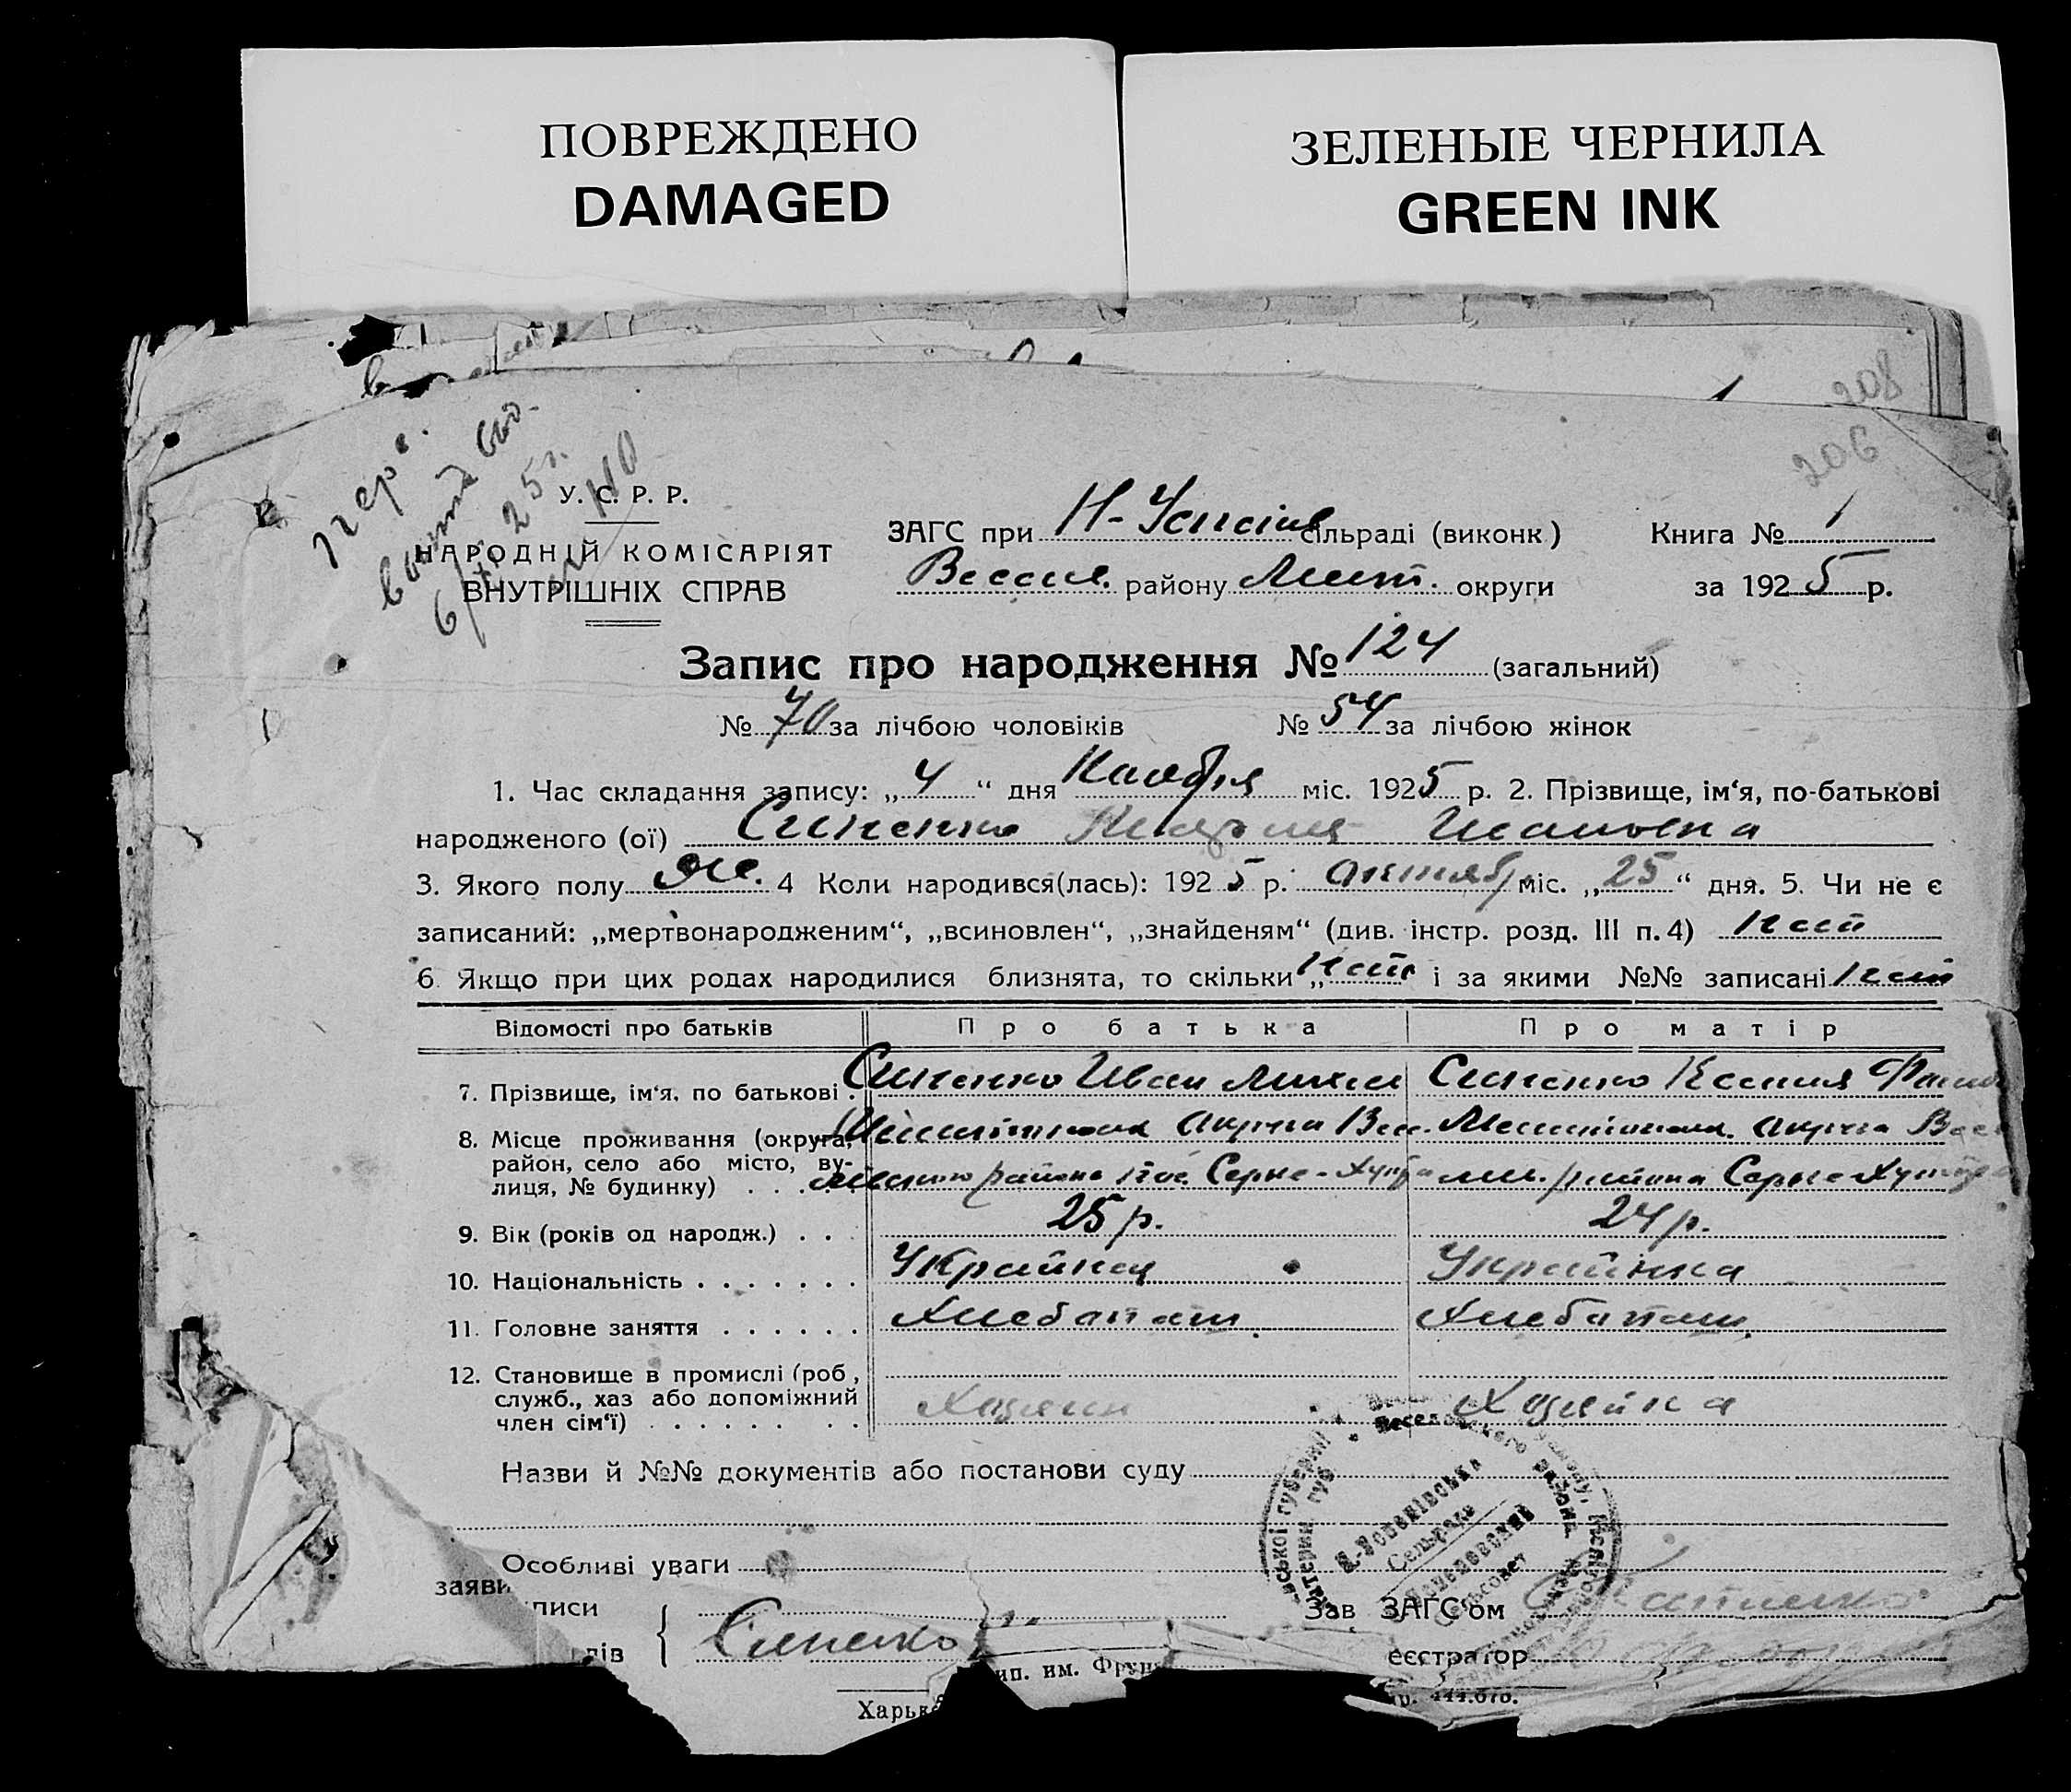 ПОВРЕЖДЕНО
DAMAGED
ЗЕЛЕНЫЕ ЧЕРНИЛА
GREEN INK
208
206
У. С. Р. Р.
НАРОДНІЙ КОМІСАРІЯТ
ВНУТРІШНІХ СПРАВ
ЗАГС при Н-Успенів сільраді (виконк) Книга № 1
Весел. району Мелит. округи за 1925 р.
Запис про народження № 124 (загальний)
№ 70 за лічбою чоловіків № 54 за лічбою жінок
1. Час складання запису: „4“ дня Ноября міс. 1925 р. 2. Прізвище, ім‘я, по-батькові
народженого (ої) Синенко Мария Ивановна
3. Якого полу Же. 4 Коли народився(лась): 1925 р. Октябр міс. „25“ дня. 5. Чи не є
записаний: „мертвонародженим“, „всиновлен“, „знайденям“ (див. інстр. розд. III п. 4) Нет
6. Якщо при цих родах народилися близнята, то скільки „Нет і за якими №№ записані Нет
Відомості про батьків Про батька Про матір
7. Прізвище, ім‘я, по батькові . Синенко Иван Михеи Синенко Ксения
8. Місце проживання (округа, Акруга Вес. Акруга Весе
район, село або місто, ву- района Серко-Хут района Серко-Хут
лиця, № будинку)
9. Вік (років од народж.) . . . 25 р. 24 р.
10. Національність . . . . . . . Украйнец Украйнка
11. Головне заняття . . . . . . Хлебапаш. Хлебапаш.
12. Становище в промислі (роб,
служб., хаз або допоміжний
член сім‘ї) . . . . . . . . Хазяин Хазяйка
Назви й №№ документів або постанови суду
Особливі уваги
заяви
писи Зав ЗАГС‘ом
дів { Синенко еєстратор
ип. им. Фрун
Харько